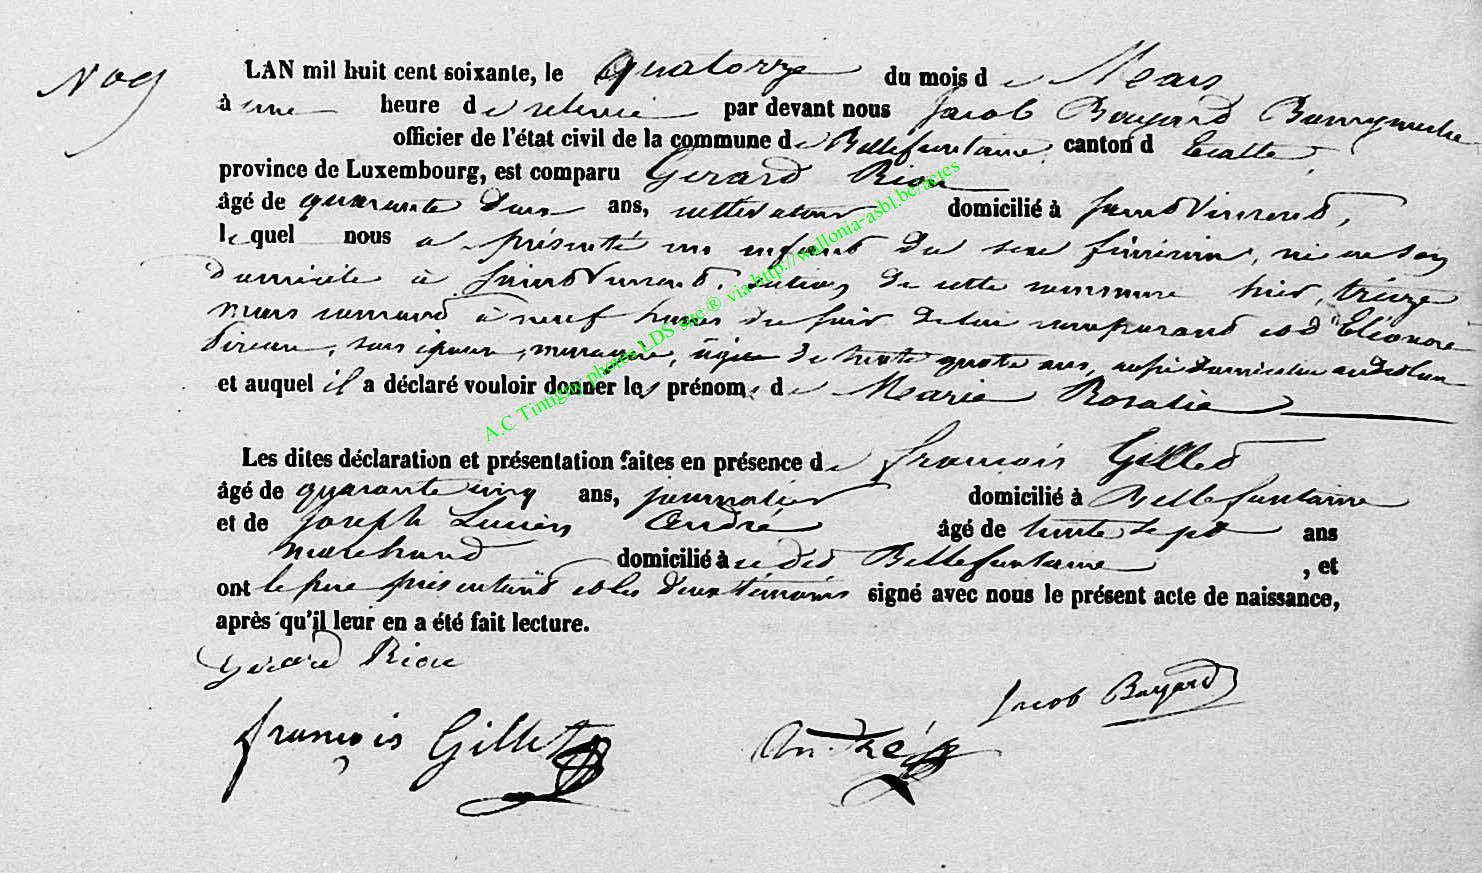 N° 9
LAN mil huit cent soixante, le quatorze du mois de Mars
à une heure de relevée par devant nous Jacob Bayard Bourgmestre
officier de l'état civil de la commune de Bellefontaine, canton d'Etalle
province de Luxembourg, est comparu Gérard Rion
âgé de quarante deux ans, cultivateur domicilié à Saint Vincent,
lequel nous a présenté un enfant du sexe féminin, né en son
domicile à Saint Vincent, section de cette commune hier, treize
mars courant à neuf heures du soir de lui comparant et d'Eléonore
son épouse, ménagère, âgée de trente quatre ans, aussi domiciliée audit lieu
et auquel il a déclaré vouloir donner les prénoms de Marie Rosalie
Les dites déclaration et présentation faites en présence de françois Gillet
âgé de quarante cinq ans, journalier domicilié à Bellefontaine
et de Joseph Lucien André âgé de trente sept ans
marchand domicilié à audit Bellefontaine, et
ont le père présentant et les deux témoins signé avec nous le présent acte de naissance,
après qu'il leur en a été fait lecture.
Gérard Rion
Jacob Bayard
françois Gillet
André
A.C Tintigny photos LDS site ® via http://wallonia-asbl.be/actes